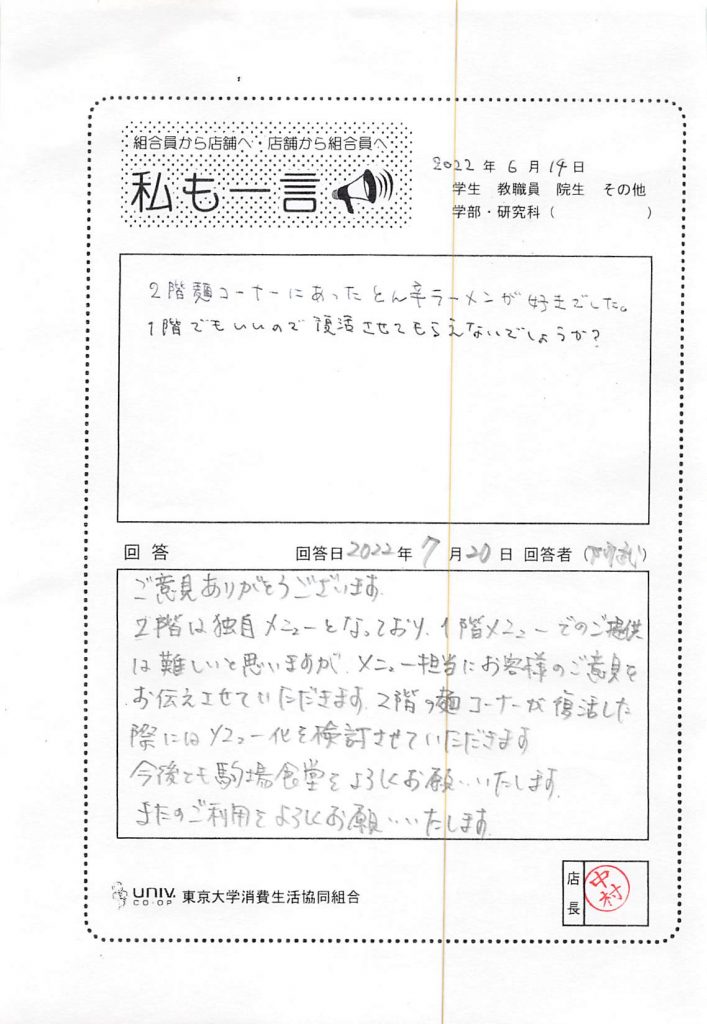 組合員から店舗へ・店舗から組合員へ
私も一言
2022年6月14日
学生 教職員 院生 その他
学部・研究科( )
2階麺コーナーにあったとん辛ラーメンが好きでした。
1階でもいいので復活させてもらえないでしょうか?
回答 回答日2022年7月20日 回答者( )
ご意見ありがとうございます。
2階は独自メニューとなっており、1階メニューでのご提供
は難しいと思いますが、メニュー担当にお客様のご意見を
お伝えさせていただきます。2階の麺コーナーが復活した
際にはメニュー化を検討させていただきます
今後とも駒場食堂をよろしくお願いいたします。
またのご利用をよろしくお願いいたします。
UNIV. CO-OP 東京大学消費生活協同組合
店長 中村